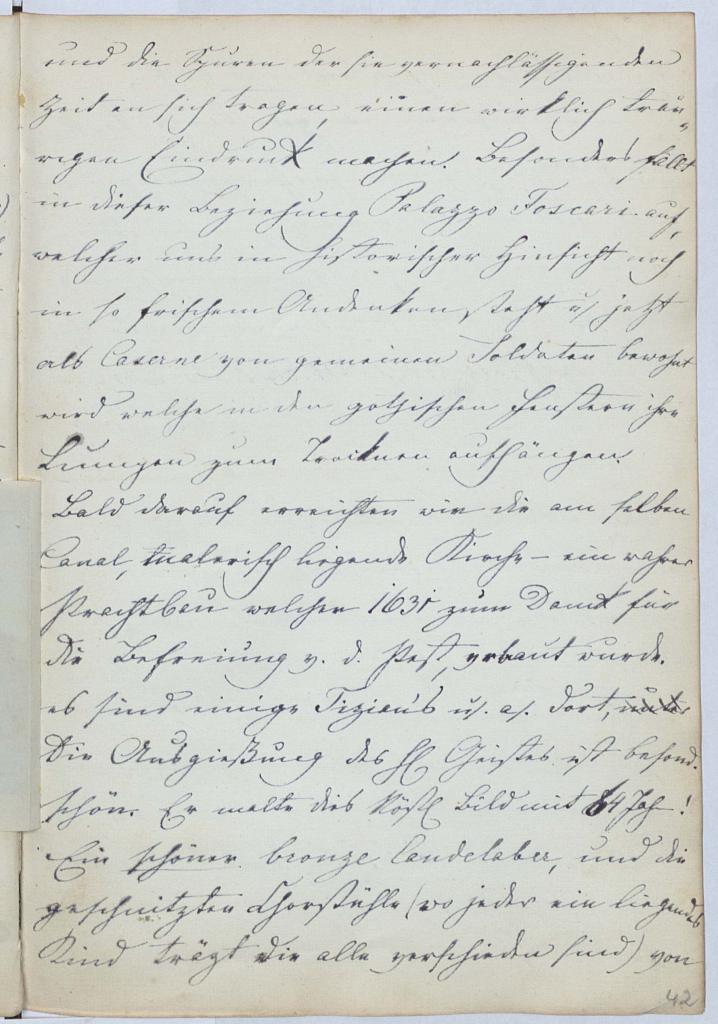 und die Spuren der sie vernachlässigenden
Zeit an sich tragen, einen wirklich trau-
rigen Eindruck machen. Besonders fällt
in dieser Beziehung Palazzo Foscari auf,
welcher uns in historischer Hinsicht noch
in so frischem Andenken steht u. jetzt
als Caserne von gemeinen Soldaten bewohnt
wird welche in den gothischen Fenstern ihre
Lumpen zum Trocknen aufhängen.
Bald darauf erreichten wir die am selben
Canal, malerisch liegende Kirche – ein wahrer
Prachtbau welcher 1631 zum Dank für
die Befreiung v. d. Pest, erbaut wurde.
es sind einige Tizian's u. a. dort,
Die Ausgießung des hl Geistes ist besond.
schön. Er malte dies köstl Bild mit 64 Jah !
Ein schöner bronze Candelaber, und die
geschnitzten Chorstühle (wo jeder ein liegendes
Kind trägt die alle verschieden sind) von
42